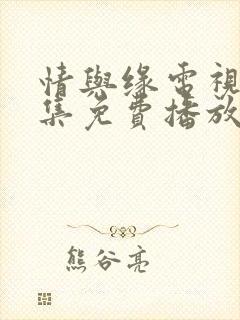 情與缘电視
集免費播放
熊谷亮